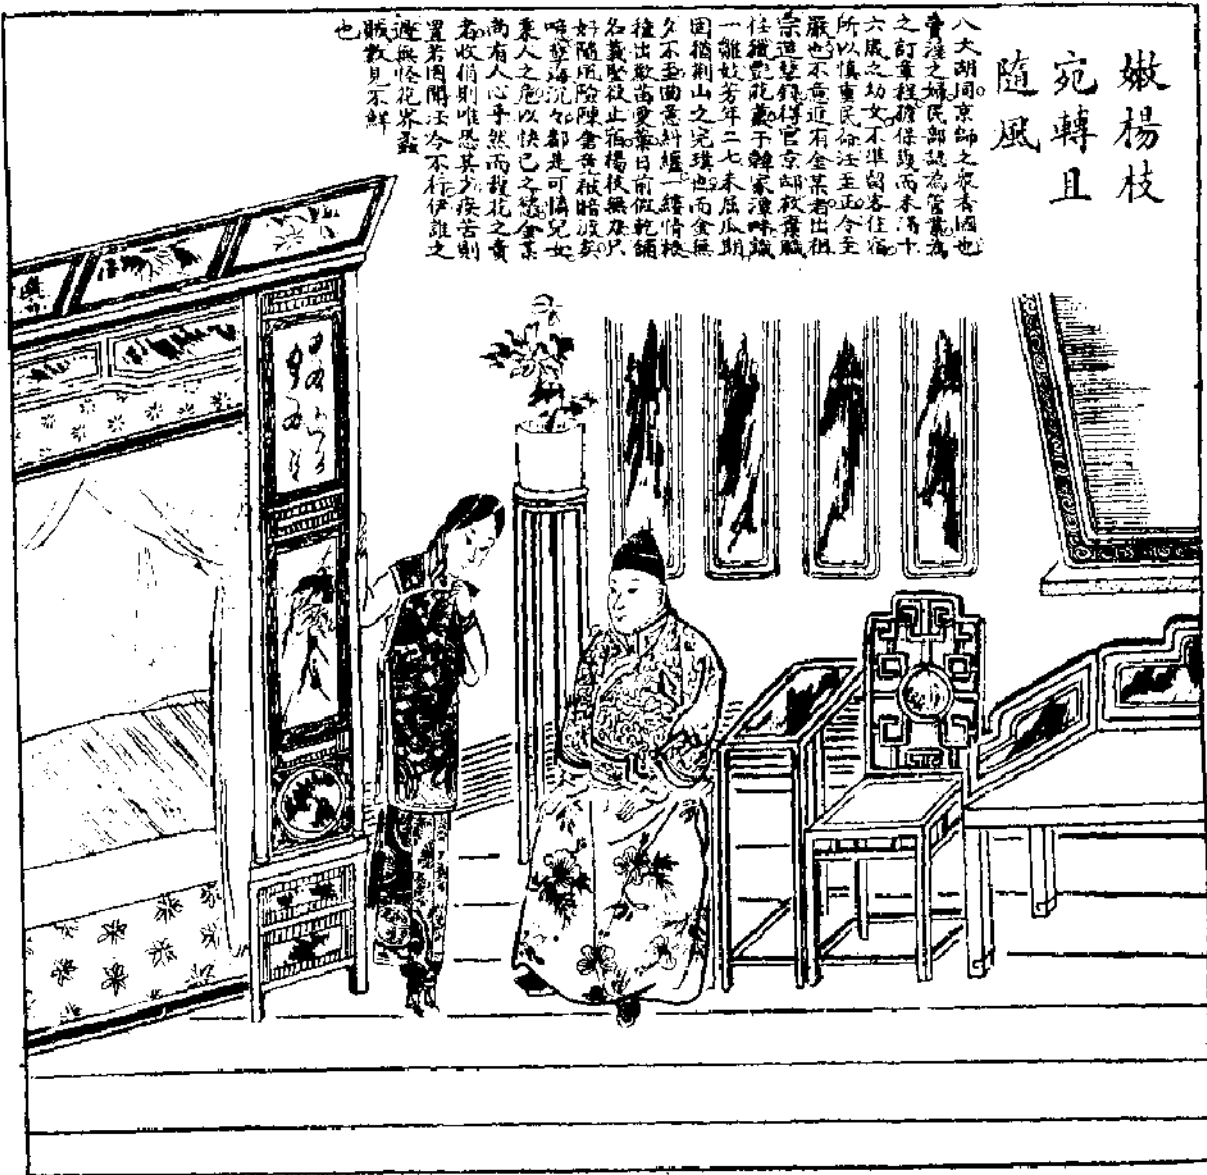 嫩楊枝
宛轉且
隨風
八大胡同京師之眾香國也
賣淫之婦民部認為營業為
之訂章程擔保護而未滿十
六歲之幼女不準留客住宿
所以慎重民命法至正令至
嚴也不意近有金某者出祖
宗造孽錢得官京邸
任獵艷花叢于韓家潭
一雛妓芳年二七未屆瓜期
固猶荊山之完璞也而金無
夕不至曲意糾纏一縷情根
種出歡苗愛葉日前假乾鋪
名義堅欲止宿楊枝無力只
好隨風險陳
唉孽海沉沉都是可憐兒女
乘人之危以快己之慾金某
尚有人心乎然而護花之責
者收捐則唯恐其少疾苦則
置若罔聞法令不行伊誰之
過無怪花界蟊
賊數見不鮮
也